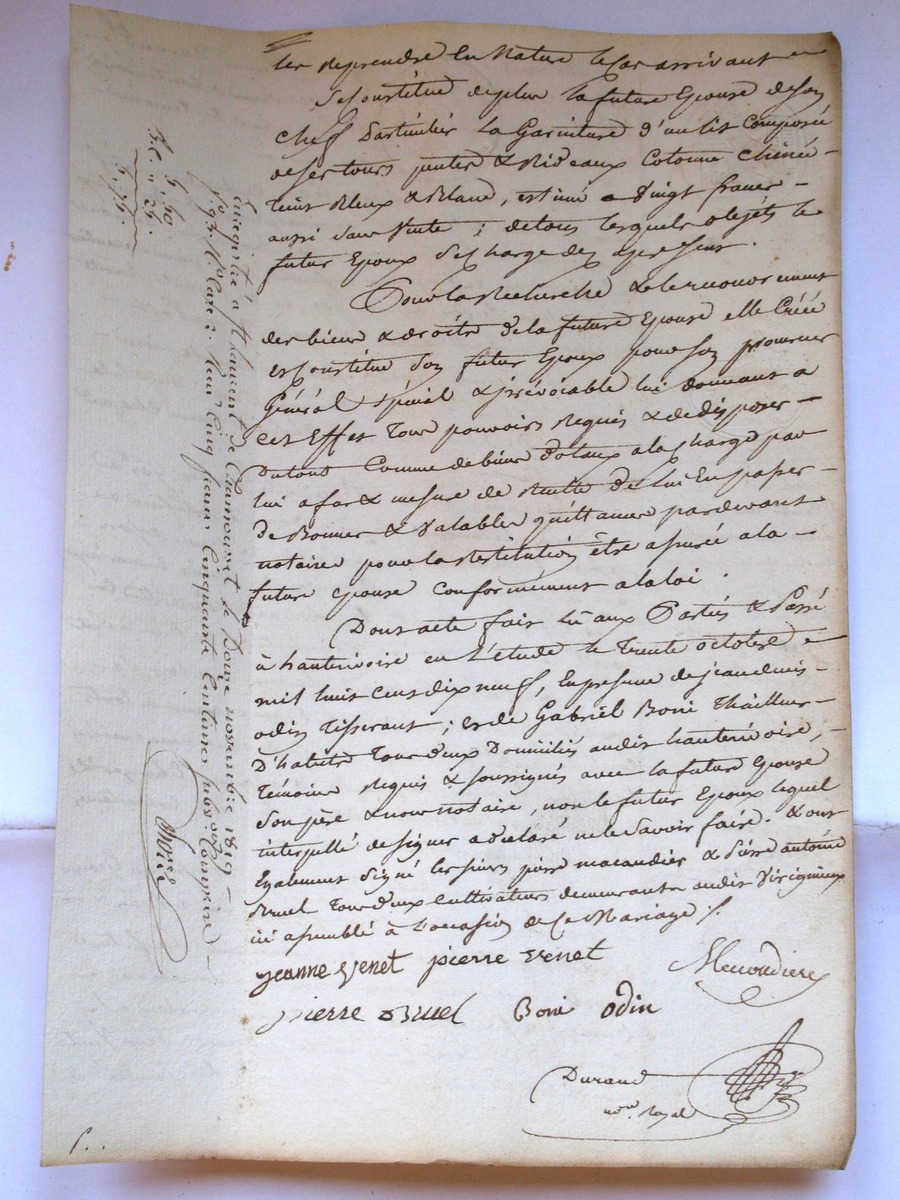 les Reprendre En Nature le Cas arrivant
Se Constitue de plus la future Epouse de Son
Chef Particulier La Garniture d'un lit Composée
de ses tours pentes & Rideaux Cotonne Chinée
teint Bleux & Blanc, estimé a Vingt francs
aussi Sans Vente ; de tous lesquels objets le
futur Epoux Se Charge dez apresent.
Pour la Recherche & le recouvrement
des biens & droits de la future Epouse elle Créée
et Constitue Son futur Epoux pour Son procureur
Général spécial & jrrévocable lui donnant a
cet Effet Tous pouvoirs Requis & de disposer
Du tout Comme de biens dotaux a la charge par
lui a far & mesure de Recette de lui En passer
de Bonnes & Valables quittances pardevant
notaire pour la Restitution être assurée a la
future epouse Conformément a la loi .
Dont acte fait Lû aux Parties & Passé
à hauterivoire en L'étude le Trente octobre
mil huit Cent dix neuf, En presence de jean denis
odin Tisserant ; et de Gabriel Boni Thailleur
D'habits Tous deux Domiciliés audit hauterivoire,
Témoins Requis & soussignés avec la future Epouse
Son père & nous notaire, non le futur Epoux lequel
interpellé de signer a déclaré ne le Savoir faire. & ont
Egalement Signé les sieurs pierre macaudier & Pierre antoine
Bruel Tous deux Cultivateurs demeurants audit Virigneux
ici assemblé à L'occasion de Ce Mariage ./.
jeanne venet pierre venet
Macaudiere
pierre Bruel Boni odin
Durand
nore Royal
Enregistré à St Laurent de Chamousset le Douze novembre 1819
fo 93. Vo Care 2. Reçu Cinq francs Cinquante Centimes subvon Comprise
5,,50